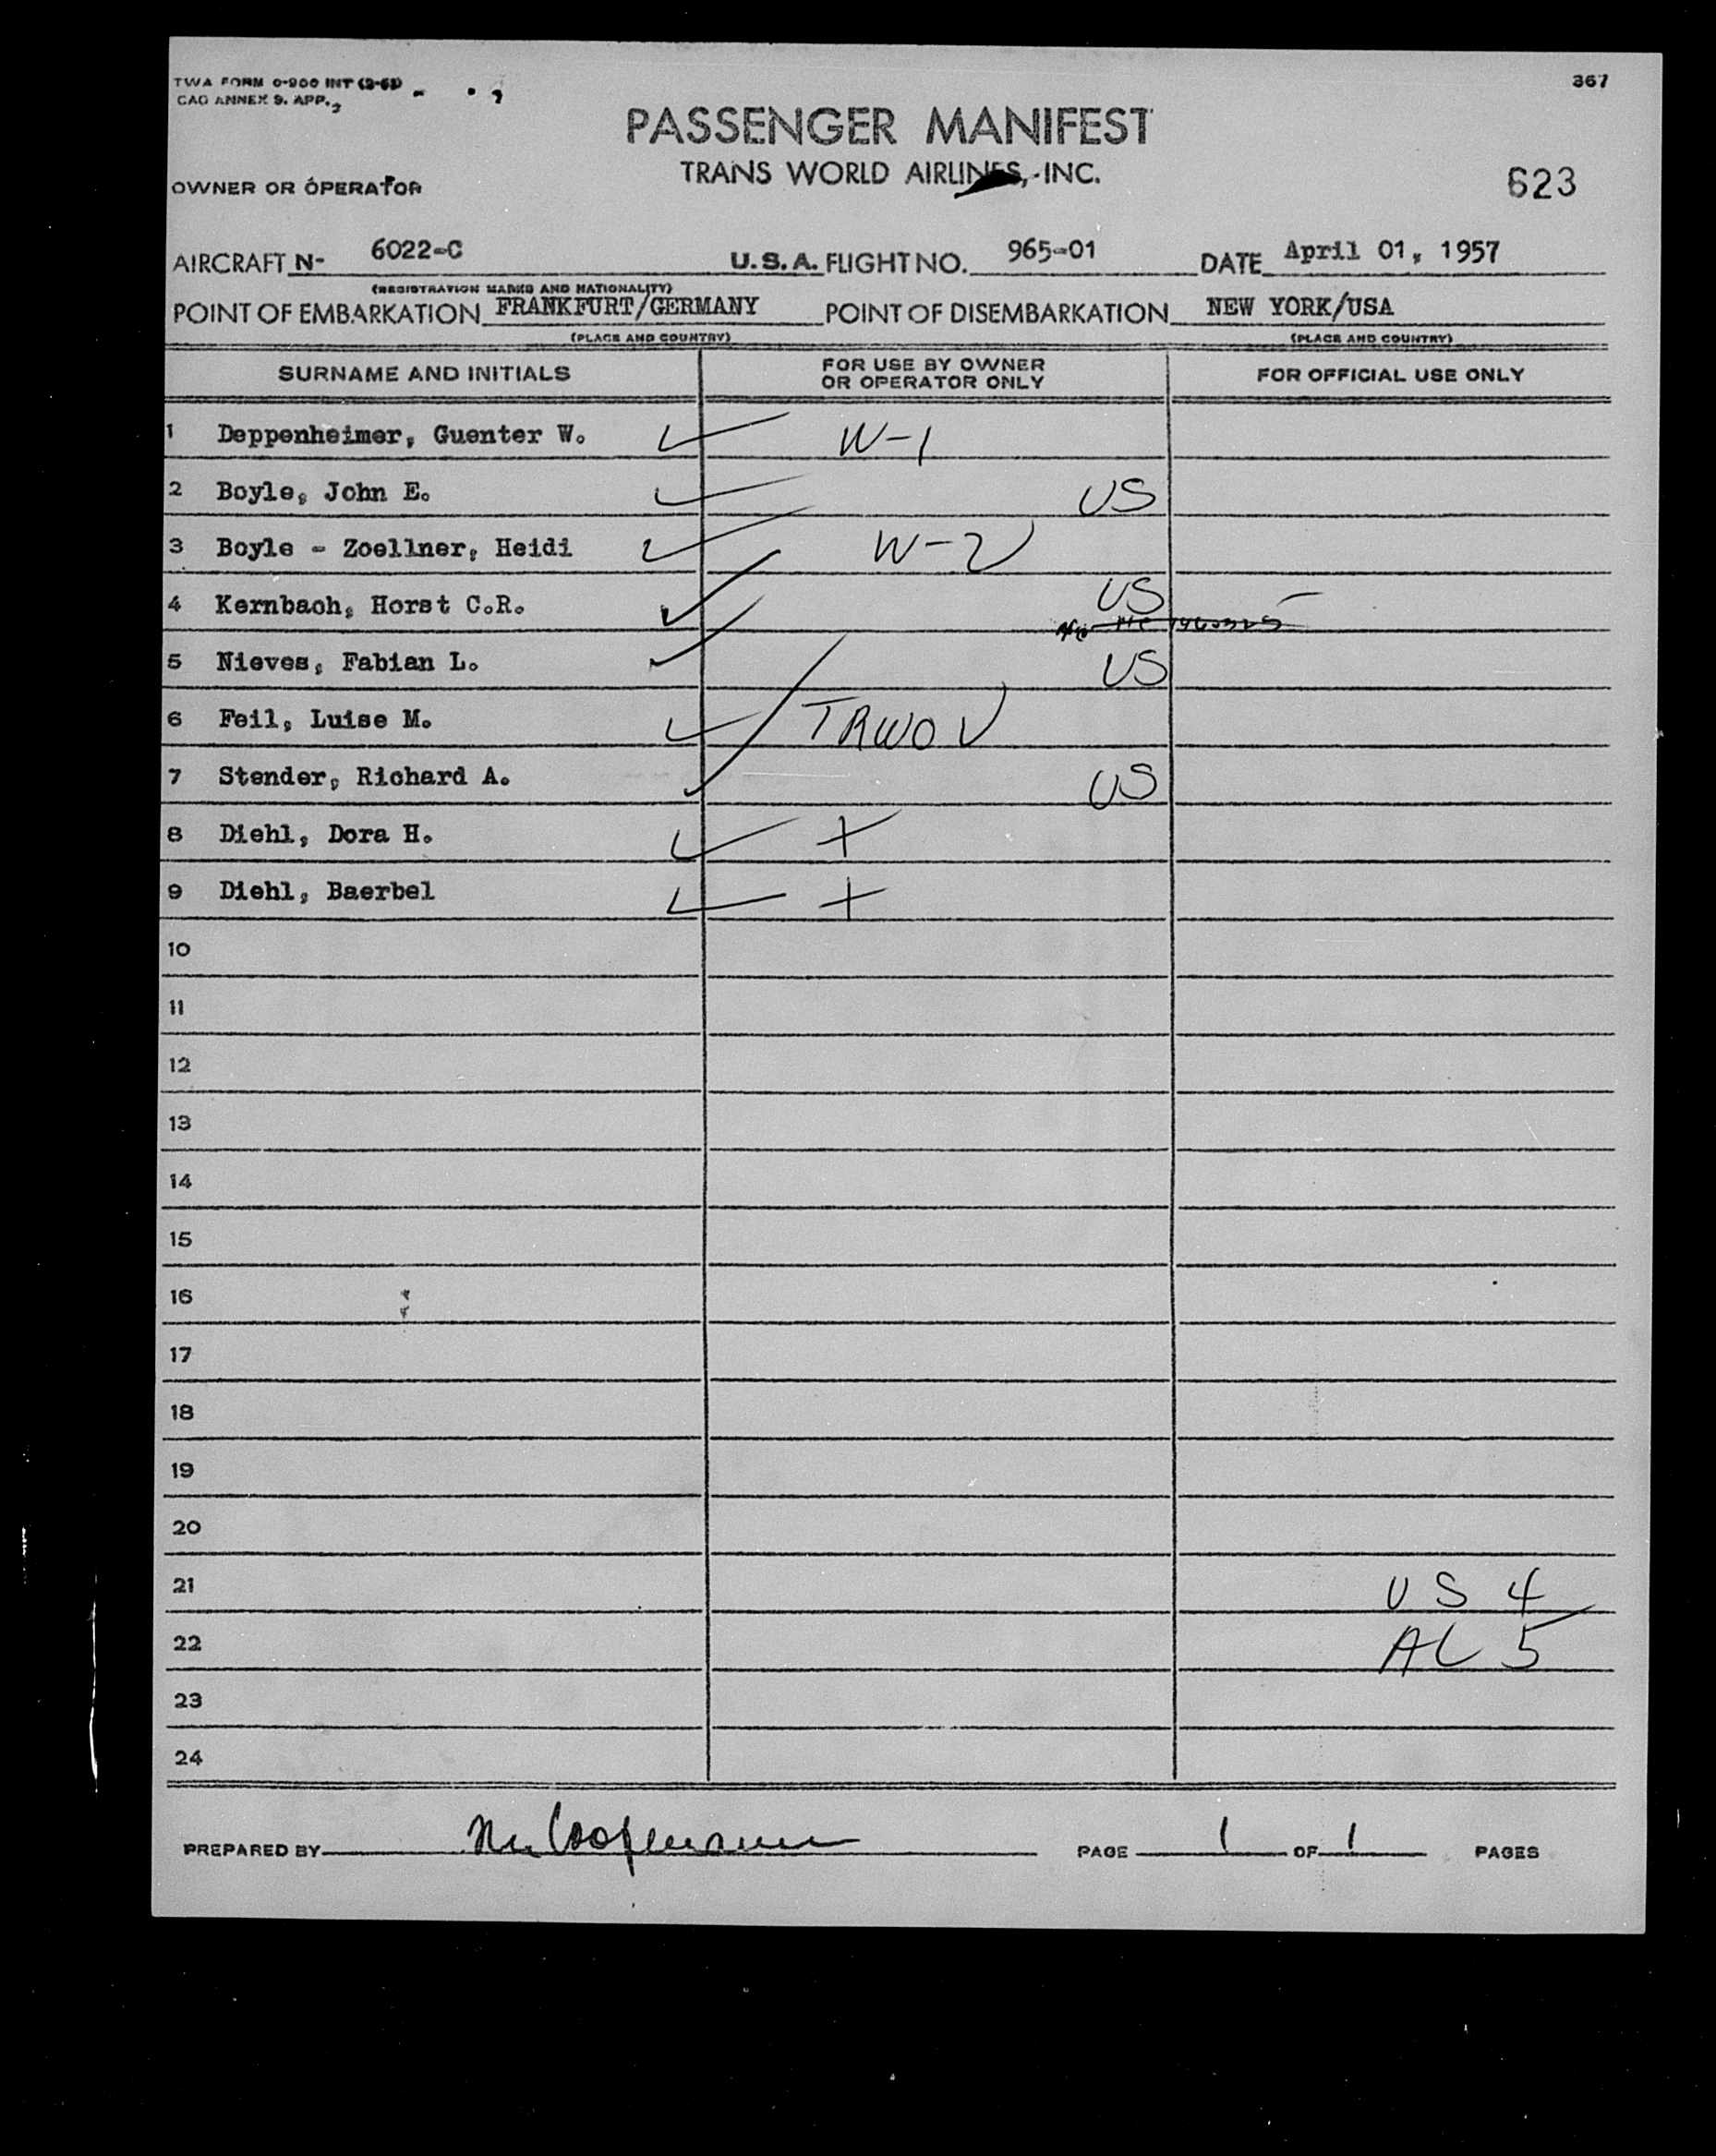 TWA FORM 0-900 INT
367
CAO ANNEX 9. APP. 2
PASSENGER MANIFEST
TRANS WORLD AIRLINES, INC.
OWNER OR OPERATOR
623
AIRCRAFT N- 6022-C U.S.A. FLIGHT NO. 965-01 DATE April 01, 1957
(REGISTRATION MARKS AND NATIONALITY)
POINT OF EMBARKATION FRANKFURT/GERMANY POINT OF DISEMBARKATION NEW YORK/USA
(PLACE AND COUNTRY) (PLACE AND COUNTRY)
SURNAME AND INITIALS FOR USE BY OWNER OR OPERATOR ONLY FOR OFFICIAL USE ONLY
1 Deppenheimer, Guenter W. W-1
2 Boyle, John E. US
3 Boyle - Zoellner, Heidi W-2
4 Kernbach, Horst C.R. US
5 Nieves, Fabian L. US
6 Feil, Luise M. TRWOV
7 Stender, Richard A. US
8 Diehl, Dora H. +
9 Diehl, Baerbel +
10
11
12
13
14
15
16
17
18
19
20
21 US 4
22 AL 5
23
24
PREPARED BY PAGE 1 OF 1 PAGES